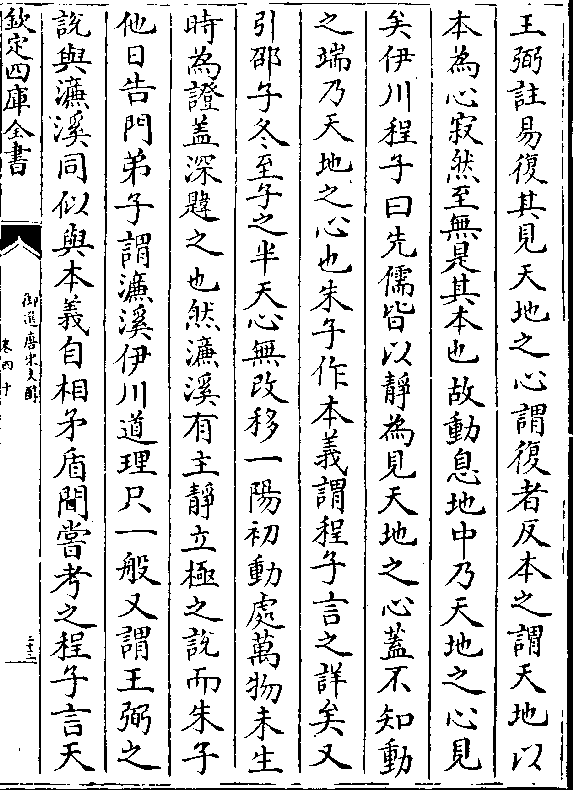 王弼註易復其見天地之心謂復者反本之謂天地以
本為心寂然至無是其本也故動息地中乃天地之心見
矣伊川程子曰先儒皆以靜為見天地之心蓋不知動
之端乃天地之心也朱子作本義謂程子言之詳矣又
引邵子冬至子之半天心無改移一陽初動處萬物未生
時為證蓋深韙之也然濂溪有主靜立極之說而朱子
他日告門弟子謂濂溪伊川道理只一般又謂王弼之
說與濂溪同似與本義自相矛盾間嘗考之程子言天
欽定四庫全書
御選唐宋文醇
卷四十
二十二